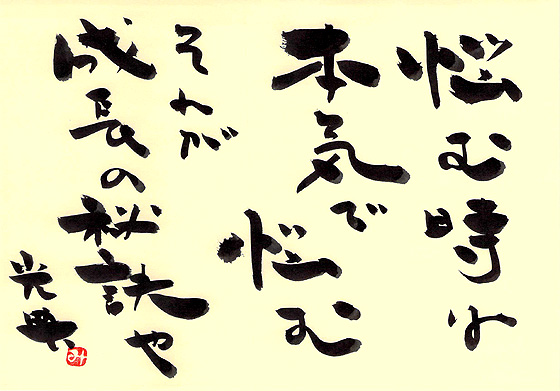 悩む時は
本気で
悩む
それが
成長の秘訣や
光典
み